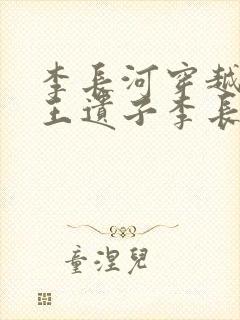 李長河穿越
王遺子李長
童涅兒